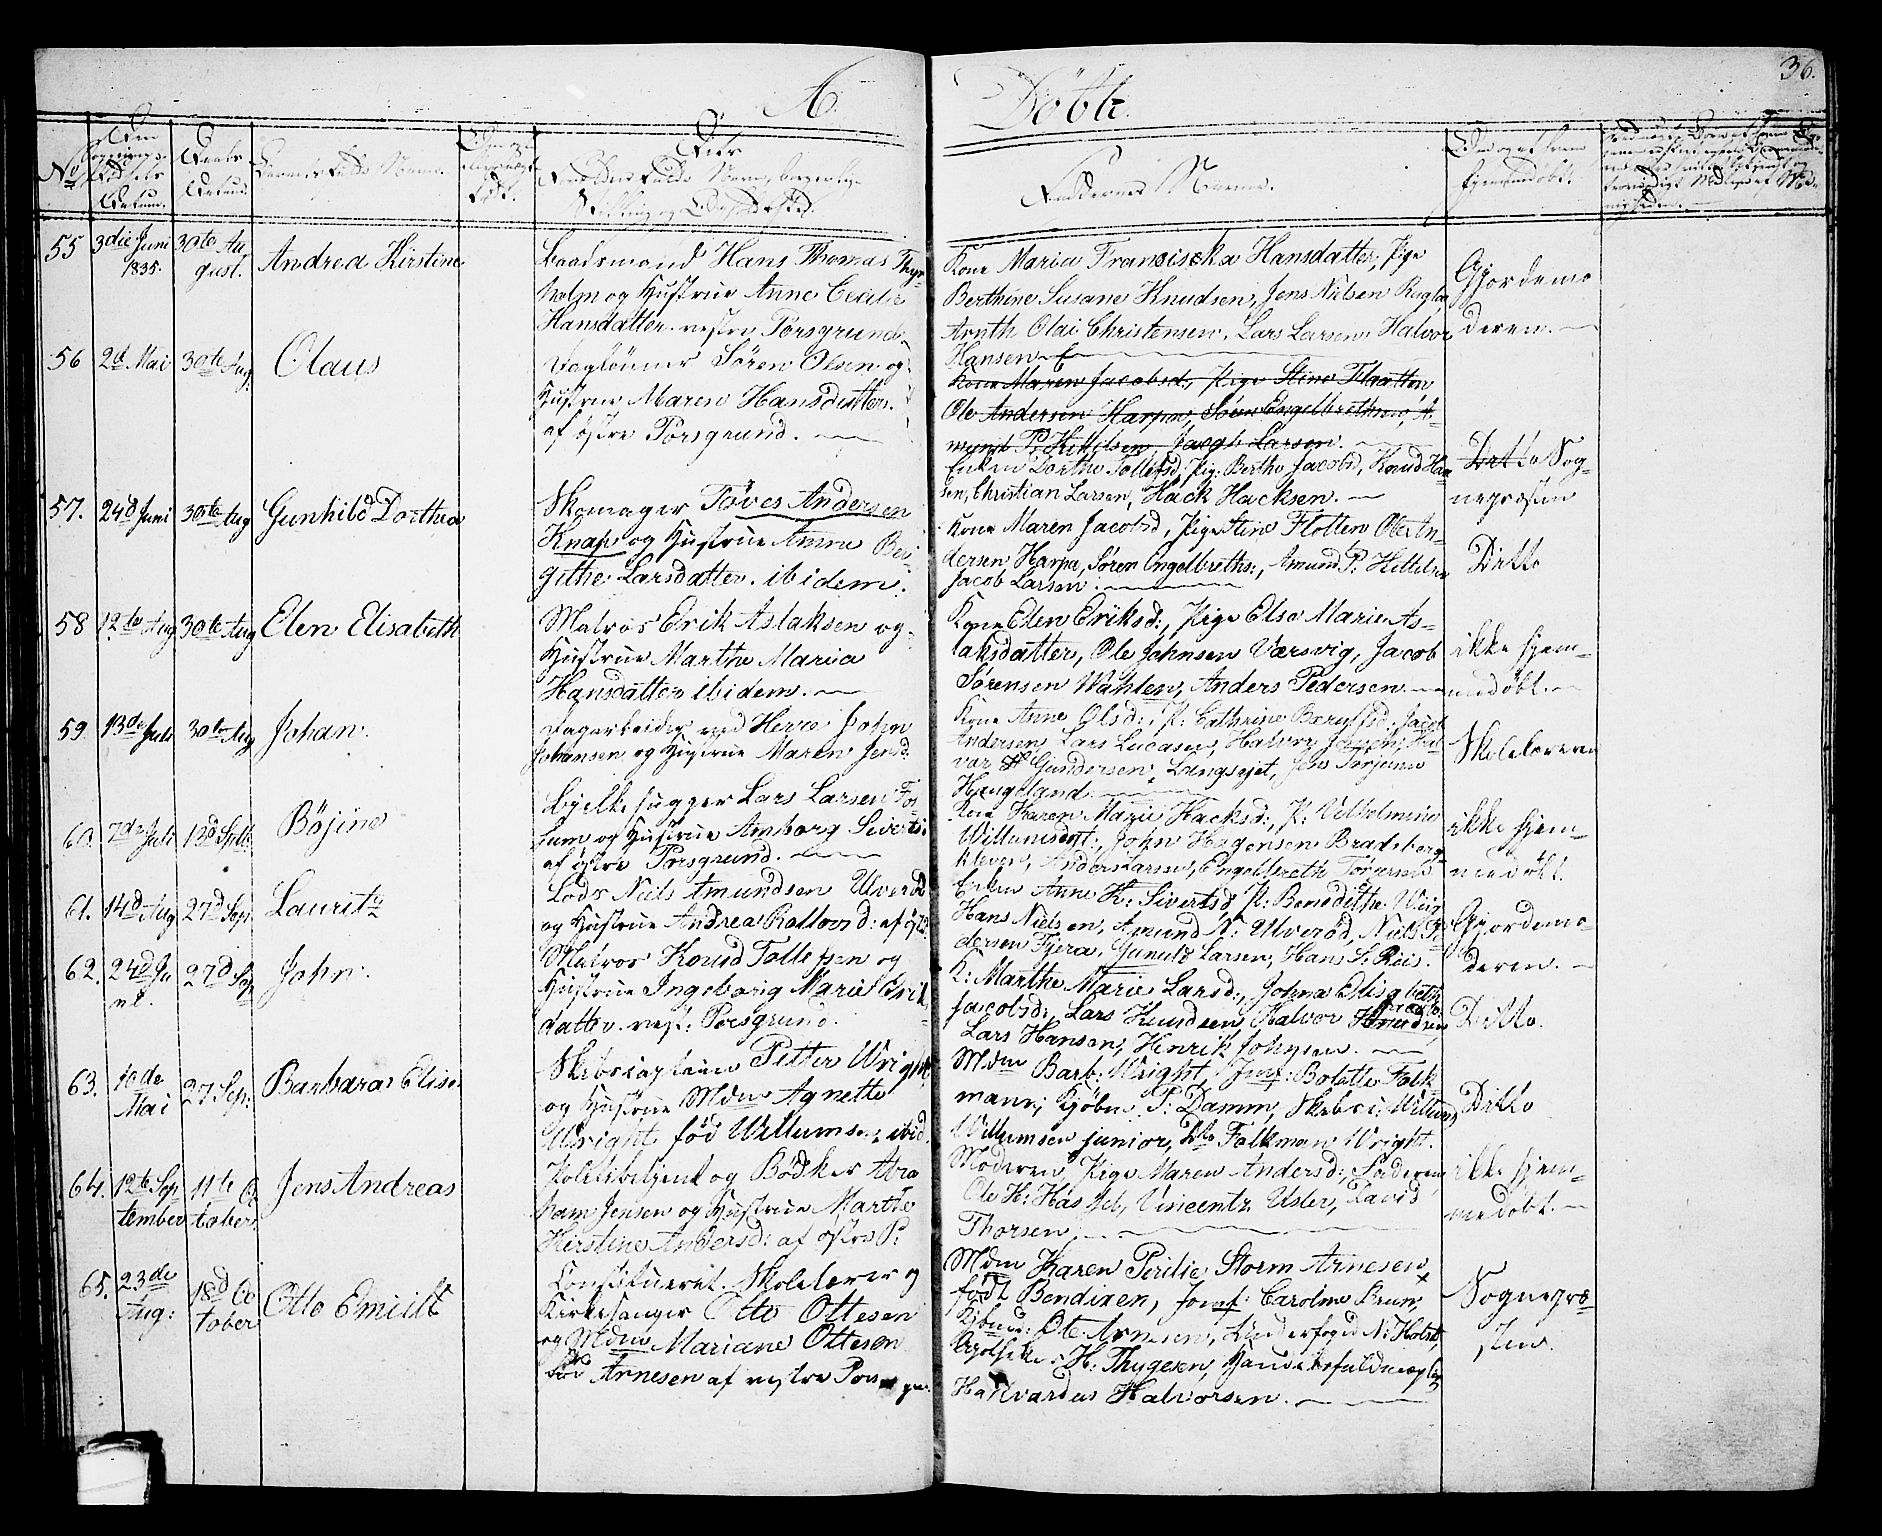 A. Döbte.
36.
No
Datum.
Daabs
Datum.
Barnets fulde Navn.
Foreldres fulde Navn, borgerlig
Stilling og Opholdssted.
Faddernes Navne.
hjemmedøbt.
55 3die Juni 1835. 30te August. Andrea Kirstine
Baadsmand Hans Thomas
holm og Hustrue Anne Cecilie
Hansdatter. vestre Porsgrund.
Kone Maria Franciscka Hansdatter, Pige
Berthine Susane Knudsen, Jens Nielsen
Olai Christensen, Lars Larsen, Halvor
Hansen
Gjordemoderen.
56 2d Mai 30te Aug. Olaus
Dagløner Søren Olsen og
Hustrue Maren Hansdatter.
af østre Porsgrund.
Kone Maren Jacobsd:, Pige Stine Flaatten
Ole Andersen Harpe, Søren Engelbrethsen, A-
mund P. Kittilsen, Jacob Larsen.
Enken Dorthe Tollefsd, Pig. Berthe Jacobsd, Knud Han
sen, Christian Larsen, Hack Hacksen.
Ditto Sognepræsten
57. 24d Juni 30te Aug Gunhild Dorthea
Skomager Töves Andersen
Knap og Hustrue Anne Ber
githe Larsdatter. ibidem.
Kone Maren Jacobsd, Pige Stine Flotten Ole An-
dersen Harpe, Søren Engelbreths:, Amund P: Kittelsen
Jacob Larsen.
Ditto
58 12te Aug 30te Aug Elen Elisabeth
Matros Erik Aslaksen og
Hustrue Marthe Maria
Hansdatter ibidem.
Kone Elen Eriksd:, Pige Else Marie As-
laksdatter, Ole Johnsen Værsvig, Jacob
Sørensen Wahlen, Anders Pedersen
ikke hjemmedøbt.
59. 13de Juli 30te Aug Johan.
Dagarbeider ved Herre John
Johansen og Hustrue Maren Jensd:
Kone Anne Olsd:, P: Cathrine, Jacob
Andersen, Lars Lucasen, Halvor
var Gundersen, Langsejet, Jens Torjersen
Haugeland.
Skolelæreren
60. 7de Juli 13d Septb. Böjine
Bjelkehugger Lars Larsen Fos
sum og Hustrue Amborg Siverts:
af østre Porsgrund.
Kone Karen Marie Hacksd:, P: Vilhelmine
Willumsdat:, John Hagensen Bradsberg
kleven, Anders Larsen, Engelbreth Torgersen
ikke hjemmedøbt.
61. 14d Aug 27d Sep. Lauritz
Lods Niels Amundsen Ulverød
og Hustrue Andrea d: af øst:
Enken Anne K: Sivertsd, P: Benedikthe
Hans Nielsen, Amund N: Ulverød, Niels Pe
dersen Tjera, Gunuld Larsen, Hans S. Riis.
Gjordemoderen.
62. 24d Juni. 27d Sep John.
Matros Knud Tollefsen og
Hustrue Ingeborg Marie Erik
datter. vest: Porsgrund.
K: Marthe Marie Larsd:, Johna Elisabeth
Jacobsd:, Lars Knudsen, Halvor Knudsen,
Lars Hansen, Henrik Johnsen.
Ditto.
63. 10de Mai 27 Sep: Barbara Elise
Skibscaptein Petter Wright
og Hustrue Mdm Agnette
Wright fød Willumsen ibid.
Mdm Barb: Wright, Jomf: Bolette Falk-
mann; Kjøbm. P: Damm, Skibsc: Willum
Willumsen junior, Dto Falkman Wright.
Ditto
64. 12te September 11te October. Jens Andreas
Politibetjent og Bödker Abra
ham Jensen og Hustrue Marthe
Kirstine Andersd: af østre P:
Moderen, Pige Maren Andersd:, Faderen,
Ole H:, Vincentz Usler, David
Thorsen,
ikke hjemmedøbt.
65. 23de Aug: 18d October Otto Emiilt
Constitueret Skolelærer og
Kirkesanger Otto Ottesen
og Mdm Mariane Ottesen
fød Arnesen af vestre Pors gr.
Mdm Karen Storm Arnesen,
født Bendixen, Jomf: Caroline Brun,
Kjbmd: Ole Arnesen, Underfoged N: Holst,
Apotheker: H. Thygesen, Handelsfuldmægtig
Hallvardus Halvorsen.
Sognepræsten.